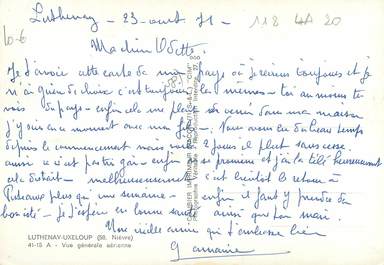 Luthenay - 23 août 71 - 118 4A 20
Ma chère Odette.
Je t'envoie cette carte de mon pays où je reviens toujours et je
n'ai guère de choix c'est toujours la même - toi au moins tu
vois du pays - enfin cela me plait de venir dans ma maison
j'y suis en ce moment avec mon fils - Nous avons eu du beau temps
depuis le commencement mais voilà 2 jours il pleut sans cesse.
aussi ce n'est pas très gai - enfin on se promène et j'ai la télé heureusement
cela distrait - malheureusement c'est bientôt le retour à
Puteaux plus qu'une semaine - enfin il faut y prendre
bon côté - Je t'espère en bonne santé ainsi que ton mari.
Une vieille amie qui t'embrasse bien
Germaine
LUTHENAY-UXELOUP (58. Nièvre)
41-15 A - Vue générale aérienne
COMBIER IMPRIMEUR MACON